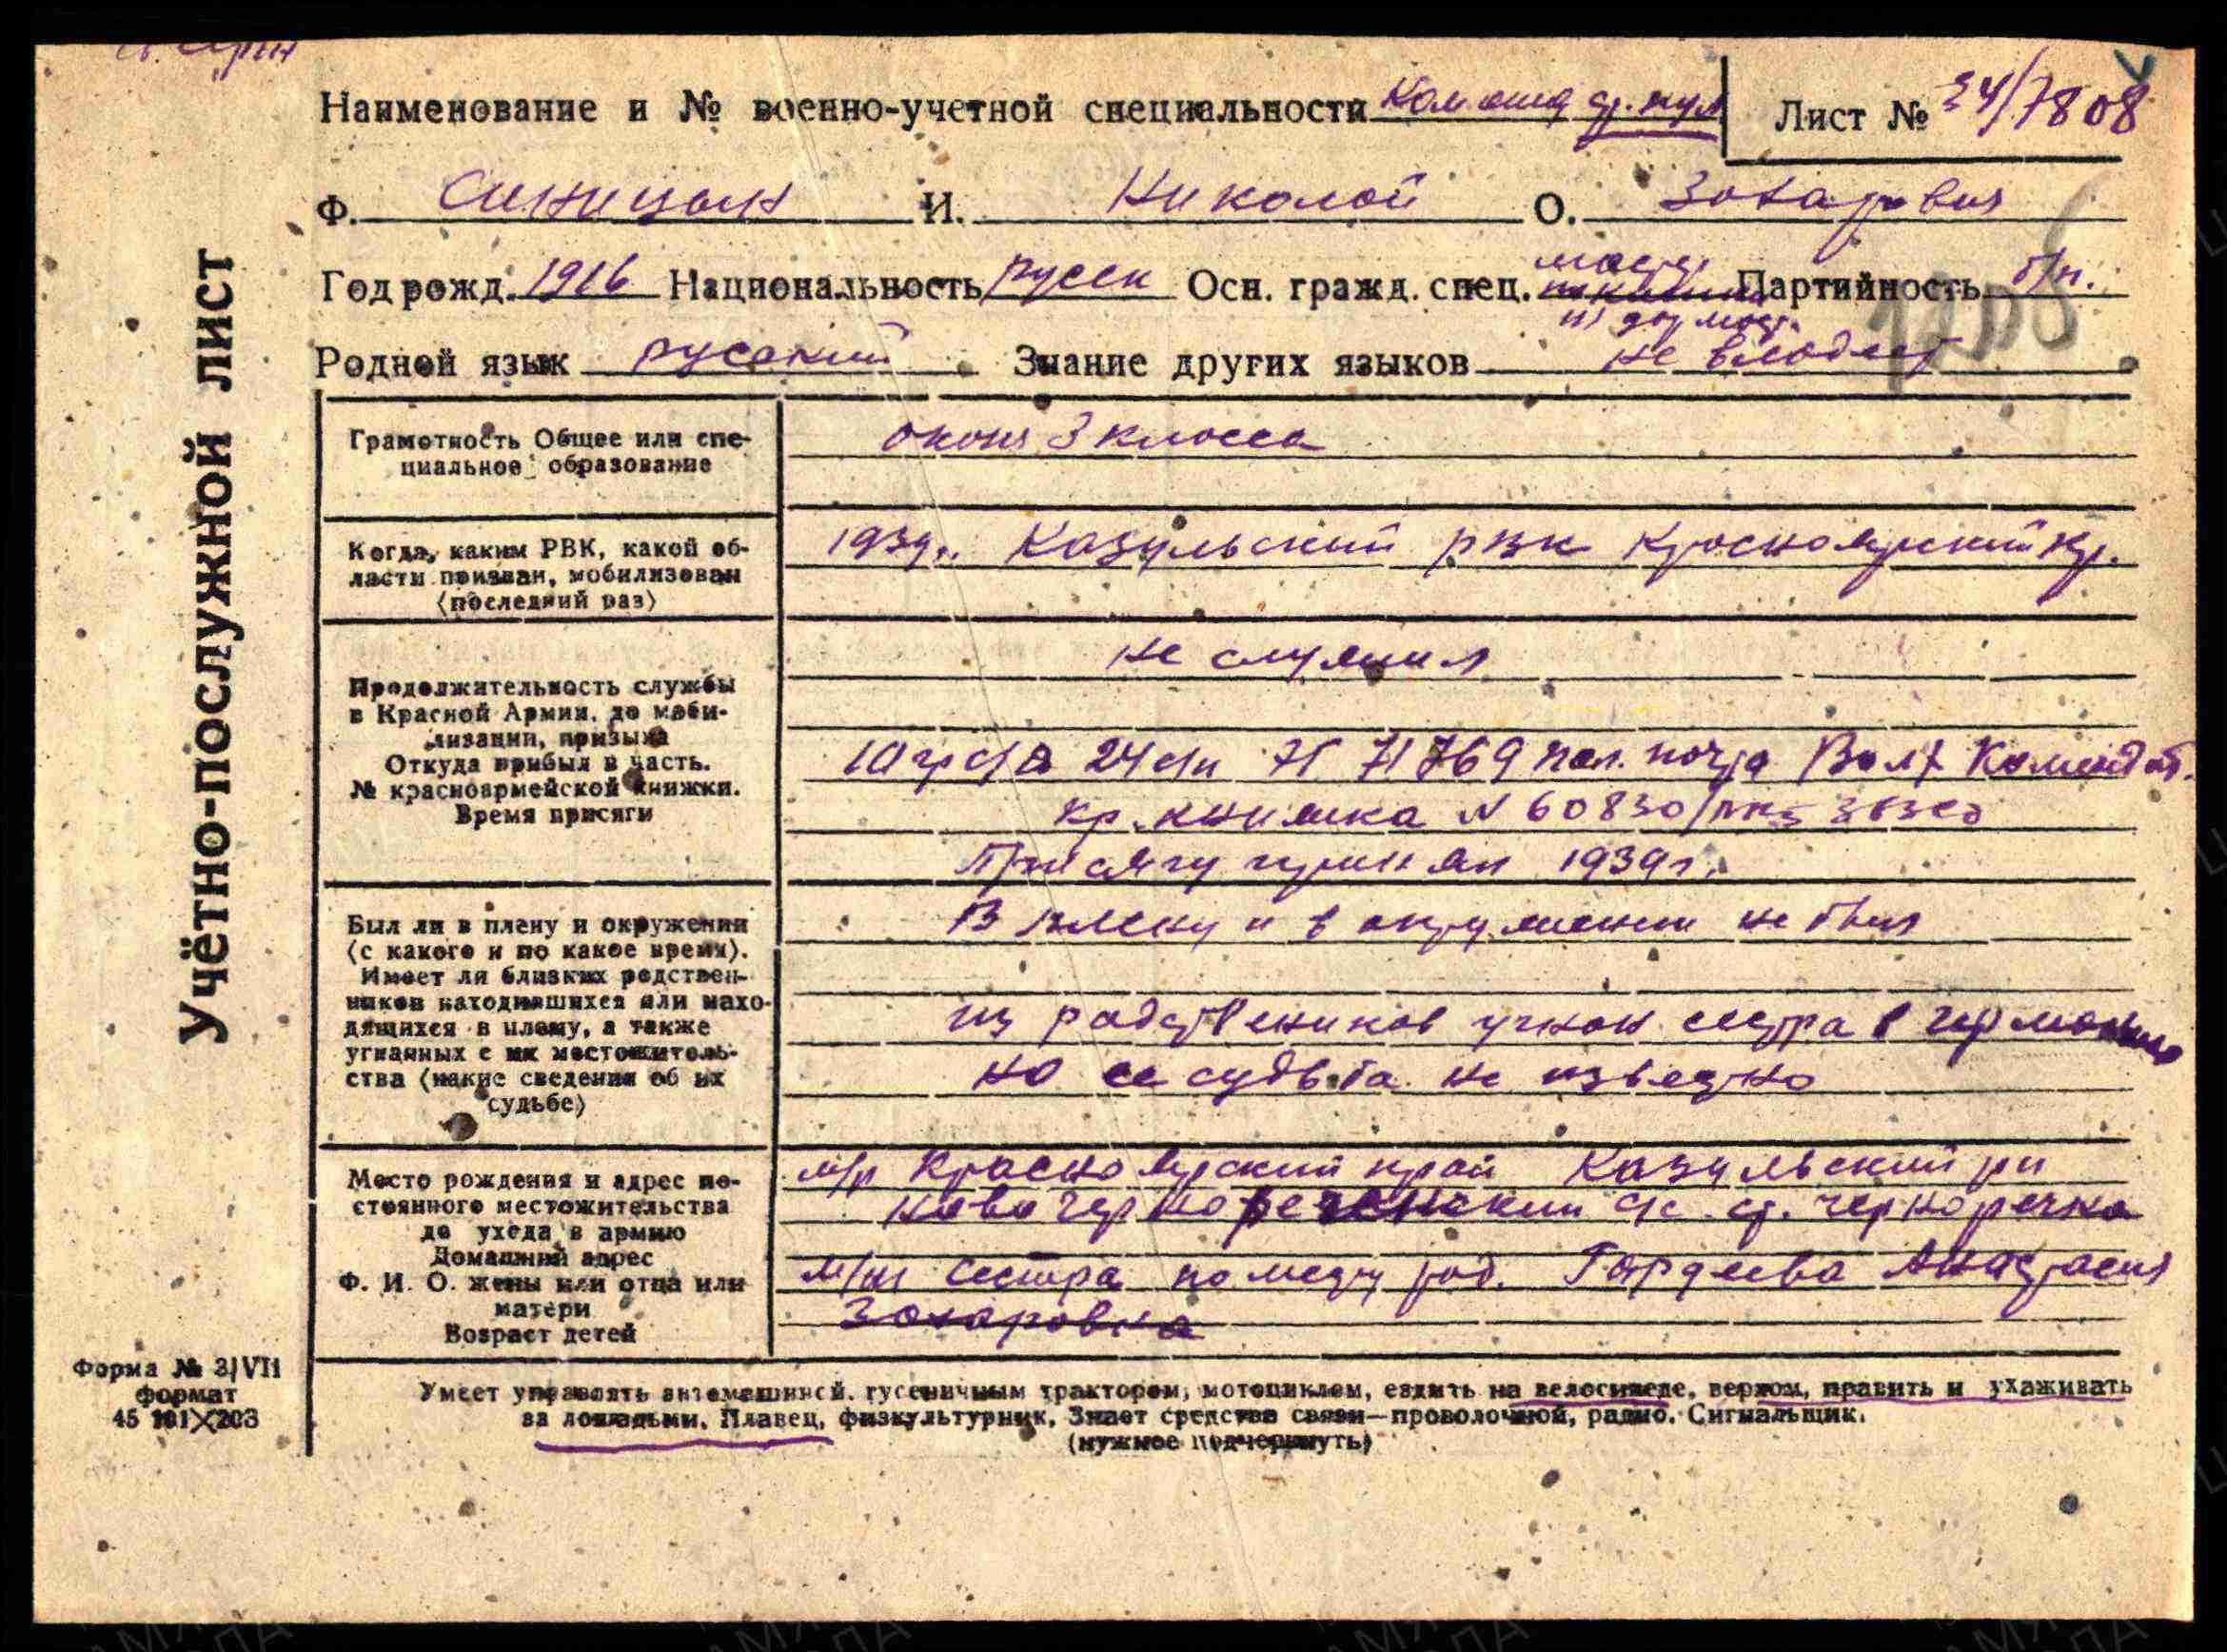 Наименование и № военно-учетной специальности
Лист № 34/7808
Ф. Синицын И. Николай О. Захарович
Год рожд. 1916 Национальность русск Осн. гражд. спец. Партийность б/п.
Родной язык русский Знание других языков не владеет
1206
УЧЁТНО-ПОСЛУЖНОЙ ЛИСТ
Грамотность Общее или спе-
циальное образование
оконч 3 класса
Когда, каким РВК, какой об-
ласти призван, мобилизован
(последний раз)
1939г. Казульский рвк Красноярский кр.
Продолжительность службы
в Красной Армии, до моби-
лизации, призыва
Откуда прибыл в часть.
№ красноармейской книжки.
Время присяги
не служил
24 71769 пол. почта
кр. книжка N 60830
Присягу принял 1939г.
Был ли в плену и окружении
(с какого и по какое время).
Имеет ли близких родствен-
ников находившихся или нахо-
дящихся в плену, а также
угнанных с их местожитель-
ства (какие сведения об их
судьбе)
В плену и в окружении не был
из родствеников угнан сестра в германию
но ее судьба не известно
Место рождения и адрес по-
стоянного местожительства
до ухода в армию
Домашний адрес
Ф. И. О. жены или отца или
матери
Возраст детей
м/р Красноярский край Казульский рн
Новочернореченский с/с ст. чернореченка
м/ж сестра по месту род. Гордеева Анастасия
Захаровна
Форма № 3/VII
формат
45 101×203
Умеет управлять автомашиной, гусеничным трактором, мотоциклом, ездить на велосипеде, верхом, править и ухаживать
за лошадьми. Плавец, физкультурник. Знает средства связи—проволочной, радио. Сигнальщик.
(нужное подчеркнуть)